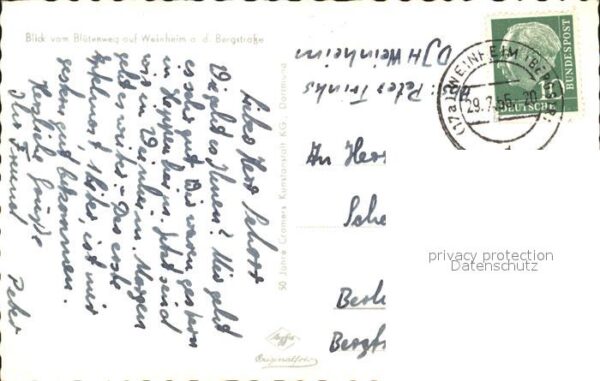 Blick vom Blütenweg auf Weinheim a. d. Bergstraße
Lieber Herr Schorr
Wie geht es Ihnen? Mir geht
es sehr gut. Wir waren gestern
in
wir in Weinheim. Morgen
geht es weiter. Das erste
ist mir
gestern gut bekommen.
Herzliche Grüße
Ihr Freund
Peter
50 Jahre Cramers Kunstanstalt KG., Dortmund
Agfa
Originalfoto
Peter Trinks
DJH Weinheim
(17a) WEINHEIM (BERGSTR)
29.7.55. 20
DEUTSCHE
BUNDESPOST
10
An Herr
Scho
Berl
Bergstr
privacy protection
Datenschutz